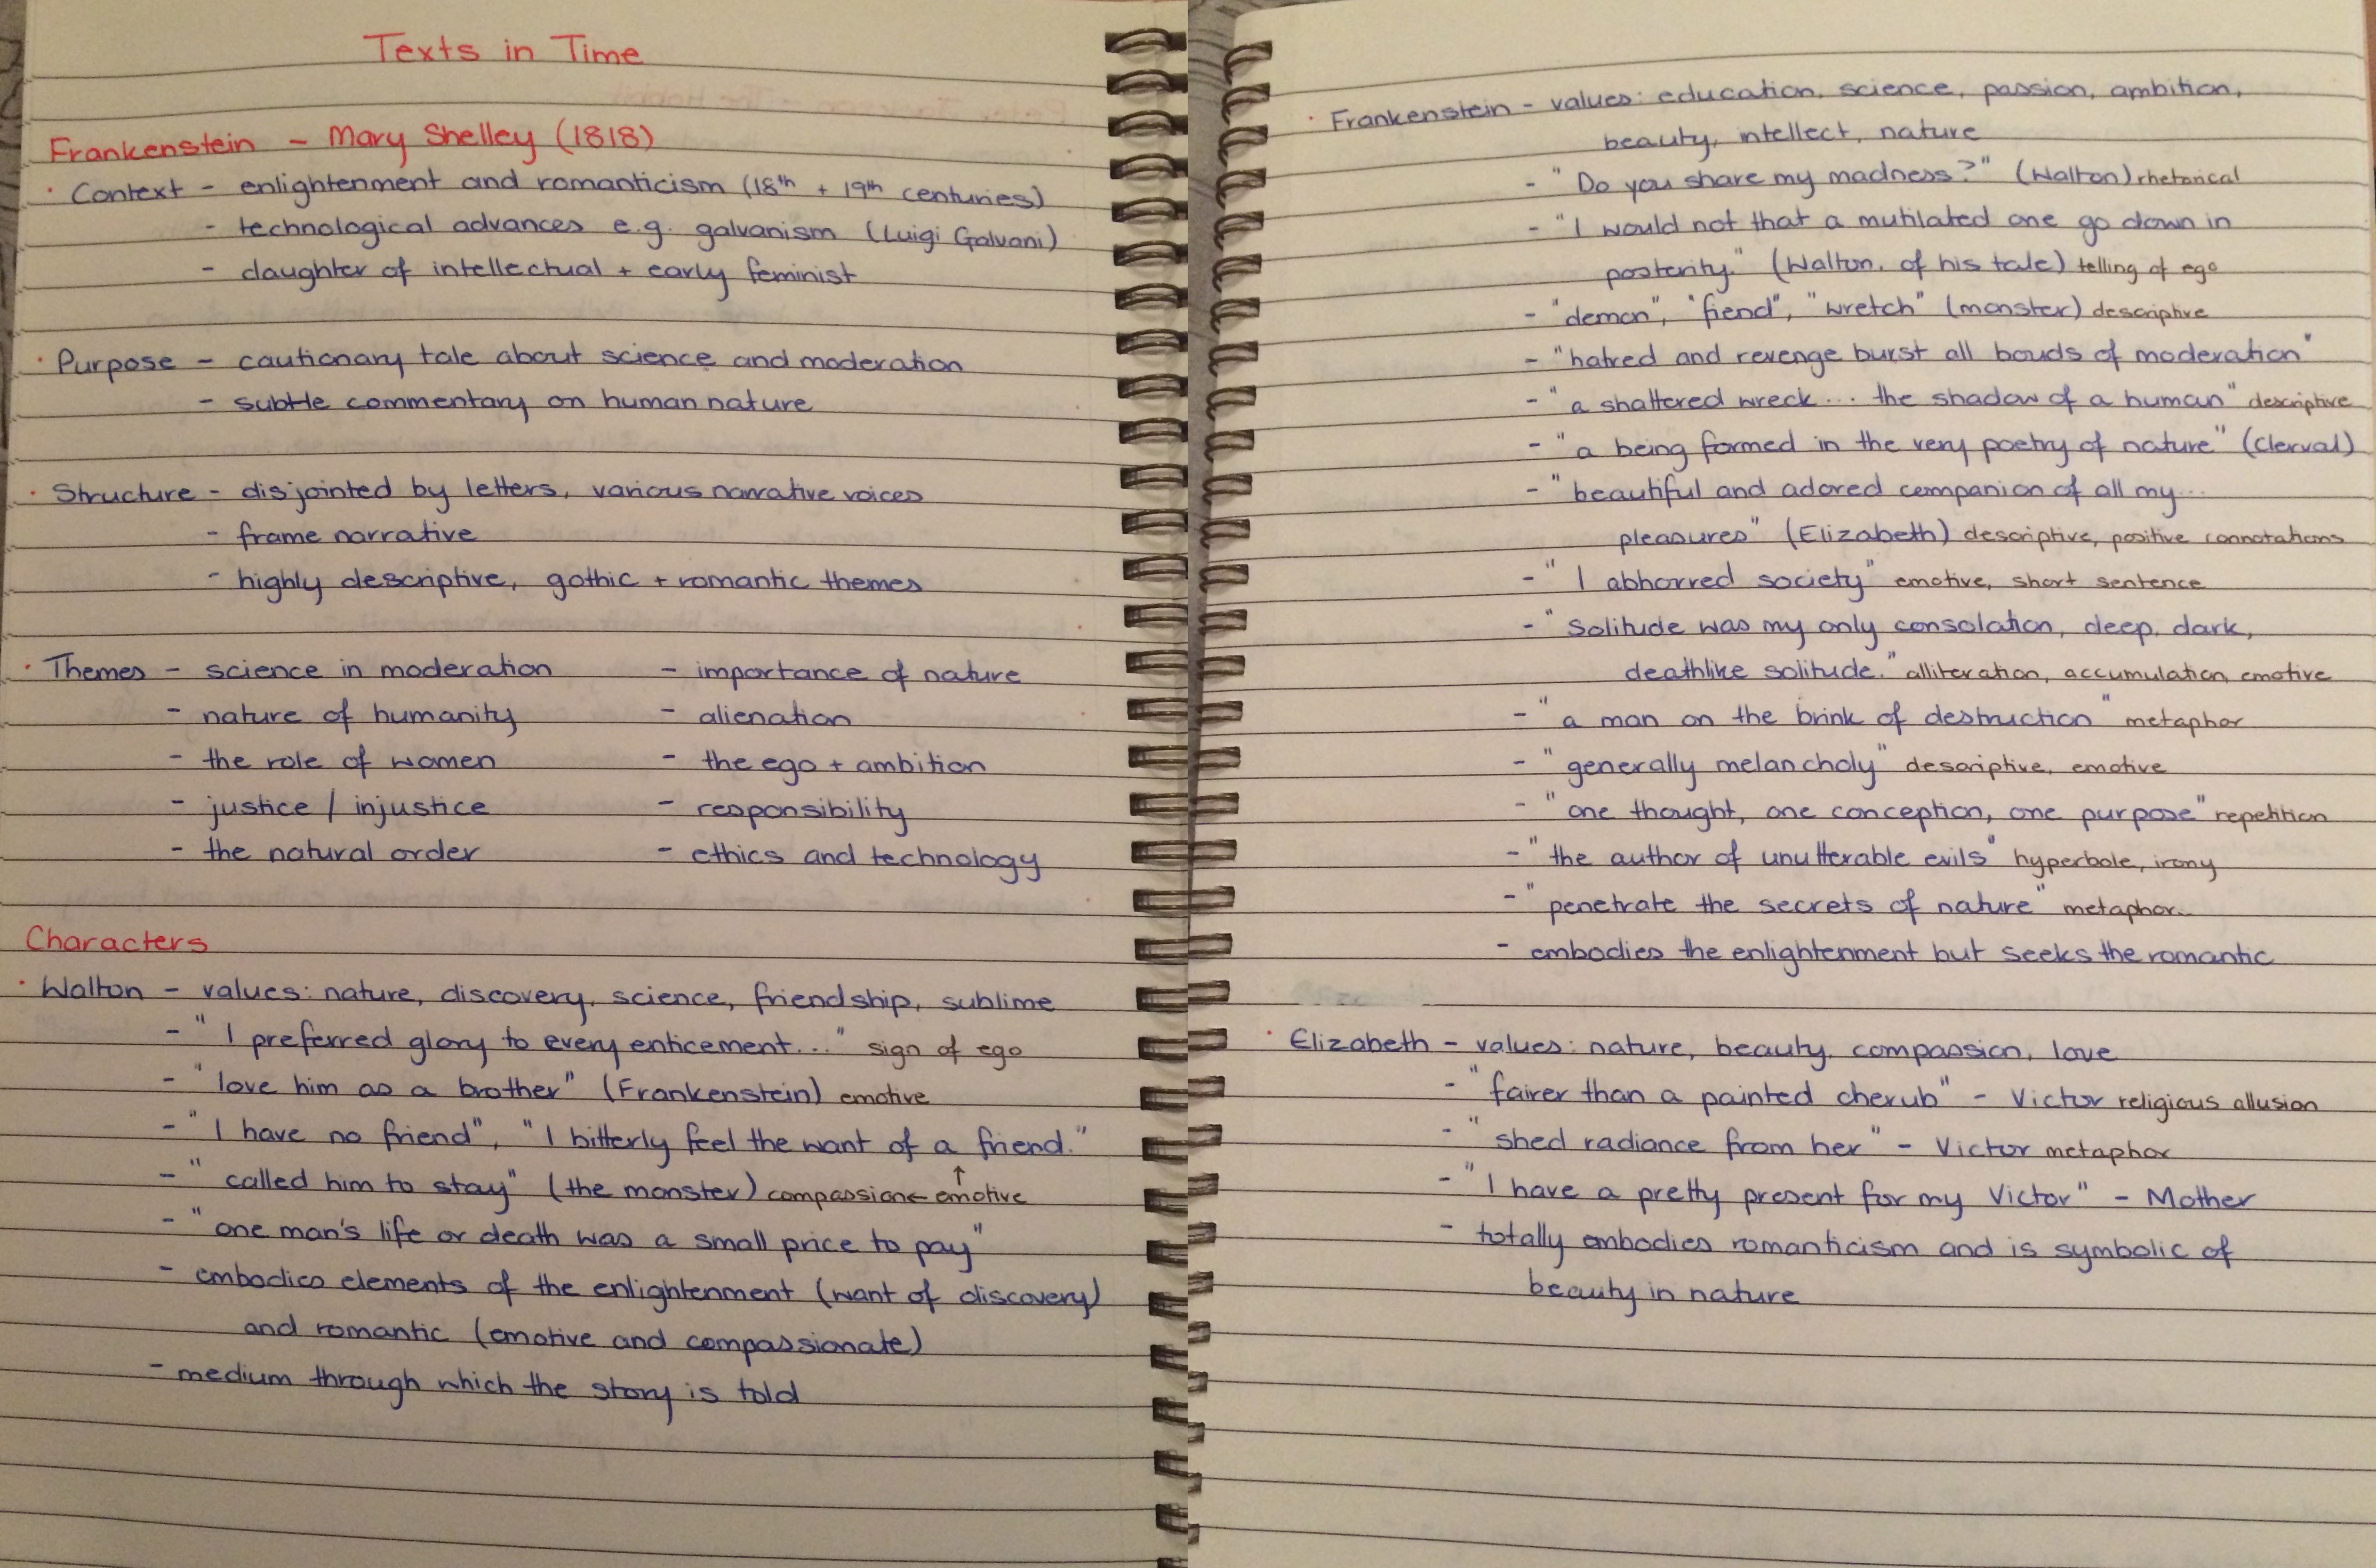 Texts in Time
Frankenstein - Mary Shelley (1818)
· Context - enlightenment and romanticism (18th + 19th centuries)
- technological advances e.g. galvanism (Luigi Galvani)
- daughter of intellectual + early feminist
· Purpose - cautionary tale about science and moderation
- subtle commentary on human nature
· Structure - disjointed by letters, various narrative voices
- frame narrative
- highly descriptive, gothic + romantic themes
· Themes - science in moderation - importance of nature
- nature of humanity - alienation
- the role of women - the ego + ambition
- justice / injustice - responsibility
- the natural order - ethics and technology
Characters
· Walton - values: nature, discovery, science, friendship, sublime
- "I preferred glory to every enticement..." sign of ego
- "love him as a brother" (Frankenstein) emotive
- "I have no friend", "I bitterly feel the want of a friend."
- "called him to stay" (the monster) compassion ← emotive ↑
- "one man's life or death was a small price to pay"
- embodies elements of the enlightenment (want of discovery)
and romantic (emotive and compassionate)
- medium through which the story is told
· Frankenstein - values: education, science, passion, ambition,
beauty, intellect, nature
- "Do you share my madness?" (Walton) rhetorical
- "I would not that a mutilated one go down in
posterity." (Walton, of his tale) telling of ego
- "demon", "fiend", "wretch" (monster) descriptive
- "hatred and revenge burst all bouds of moderation"
- "a shattered wreck... the shadow of a human" descriptive
- "a being formed in the very poetry of nature" (Clerval)
- "beautiful and adored companion of all my...
pleasures" (Elizabeth) descriptive, positive connotations
- "I abhorred society" emotive, short sentence
- "Solitude was my only consolation, deep, dark,
deathlike solitude." alliteration, accumulation, emotive
- "a man on the brink of destruction" metaphor
- "generally melancholy" descriptive, emotive
- "one thought, one conception, one purpose" repetition
- "the author of unutterable evils" hyperbole, irony
- "penetrate the secrets of nature" metaphor
- embodies the enlightenment but seeks the romantic
· Elizabeth - values: nature, beauty, compassion, love
- "fairer than a painted cherub" - Victor religious allusion
- "shed radiance from her" - Victor metaphor
- "I have a pretty present for my Victor" - Mother
- totally embodies romanticism and is symbolic of
beauty in nature